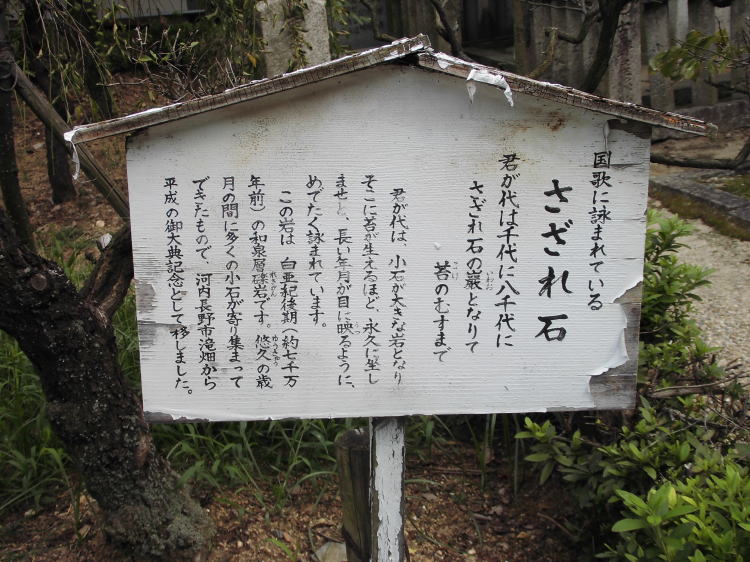 国歌に詠まれている
さざれ石
君が代は千代に八千代に
さざれ石の巌となりて
苔のむすまで
君が代は、小石が大きな岩となり
そこに苔が生えるほど、永久に坐し
ませと、長い年月が目に映るように、
めでたく詠まれています。
この岩は、白亜紀後期(約七千万
年前)の和泉層礫岩です。悠久の歳
月の間に多くの小石が寄り集まって
できたもので、河内長野市滝畑から
平成の御大典記念として移しました。